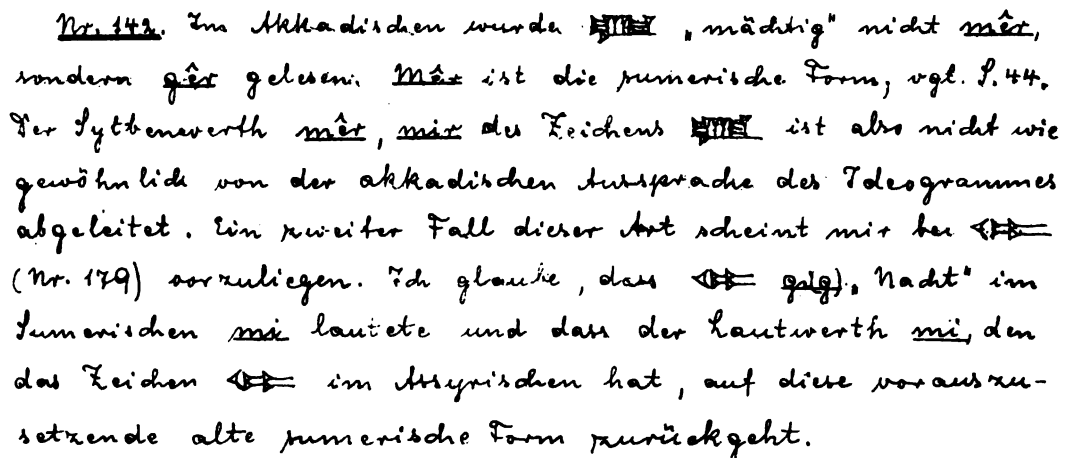 Nr. 142. Im Akkadischen wurde „mächtig“ nicht mêr,
sondern gêr gelesen. Mêr ist die sumerische Form, vgl. S. 44.
Der Sylbenwerth mêr, mir des Zeichens ist also nicht wie
gewöhnlich von der akkadischen Aussprache des Ideogrammes
abgeleitet. Ein zweiter Fall dieser Art scheint mir bei
(Nr. 179) vorzuliegen. Ich glaube, dass gi(g) „Nacht“ im
Sumerischen mi lautete und dass der Lautwerth mi, den
das Zeichen im Assyrischen hat, auf diese vorauszu-
setzende alte sumerische Form zurückgeht.